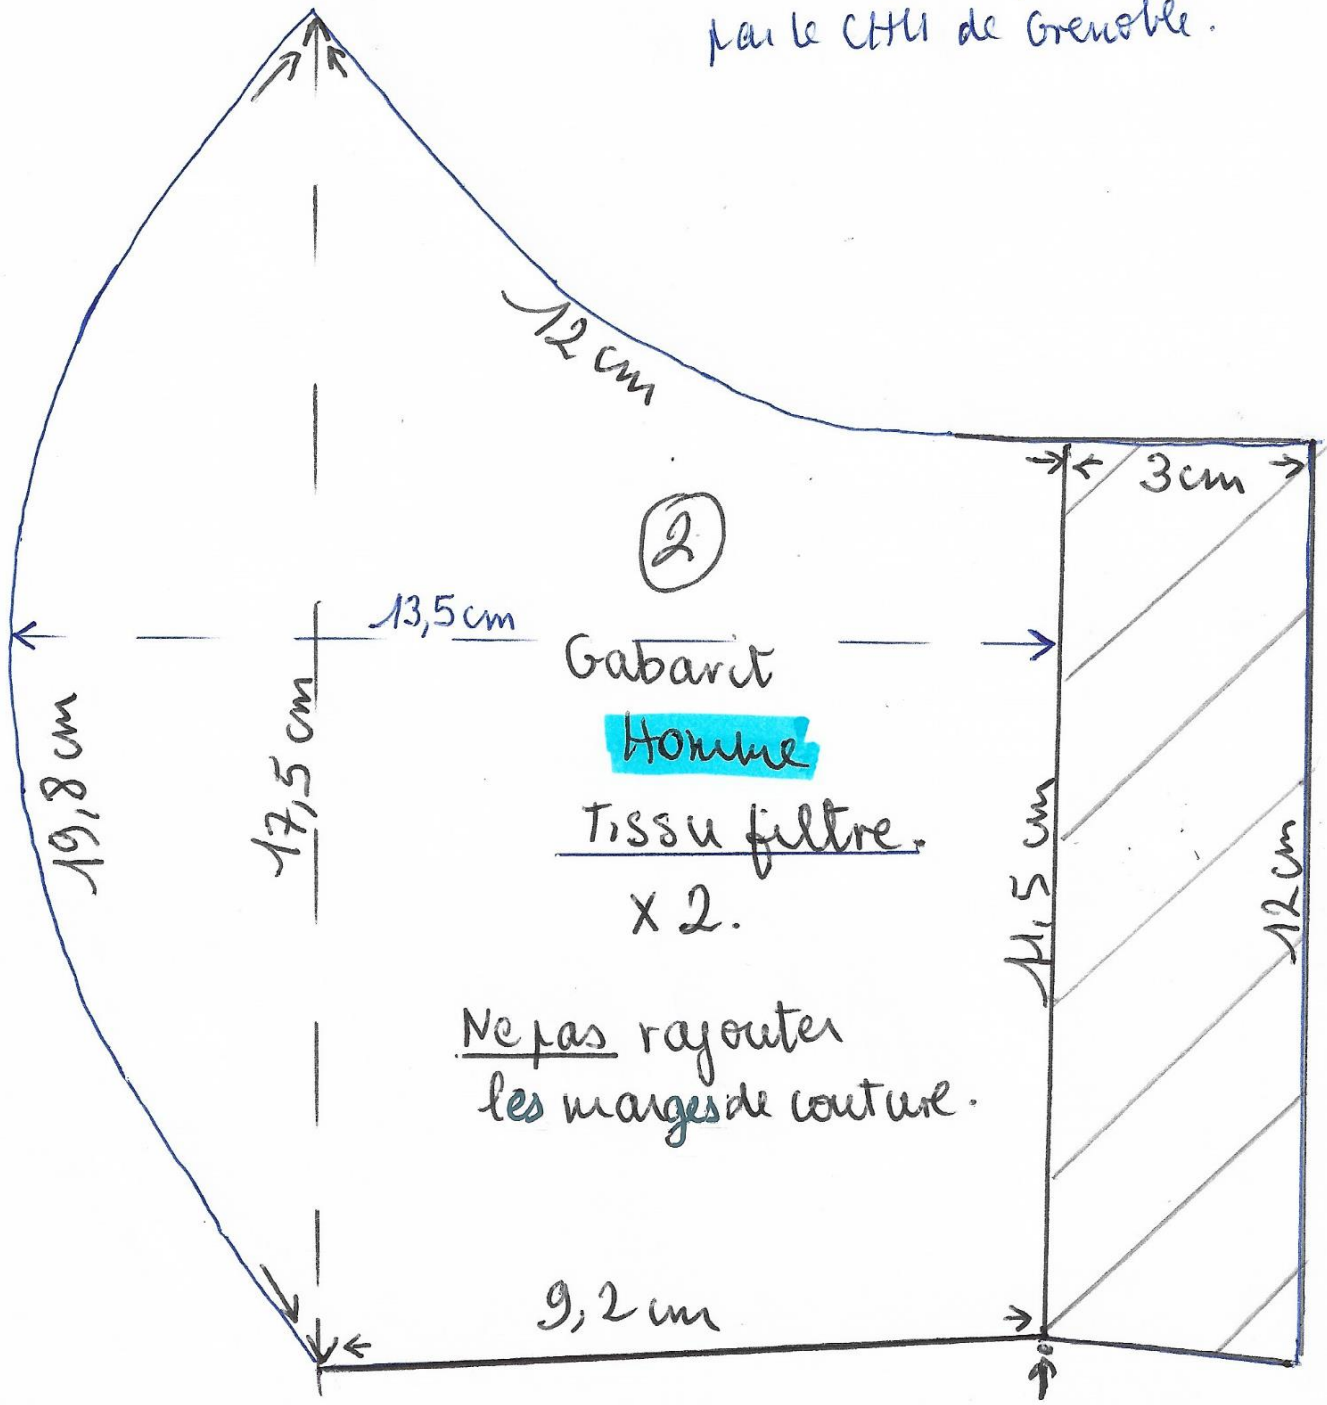 par le CHU de Grenoble.
12 cm
3 cm
2
13,5 cm
Gabarit
Homme
Tissu filtre.
X 2.
19,8 cm
17,5 cm
11,5 cm
12 cm
Ne pas rajouter
les marges de couture.
9,2 cm